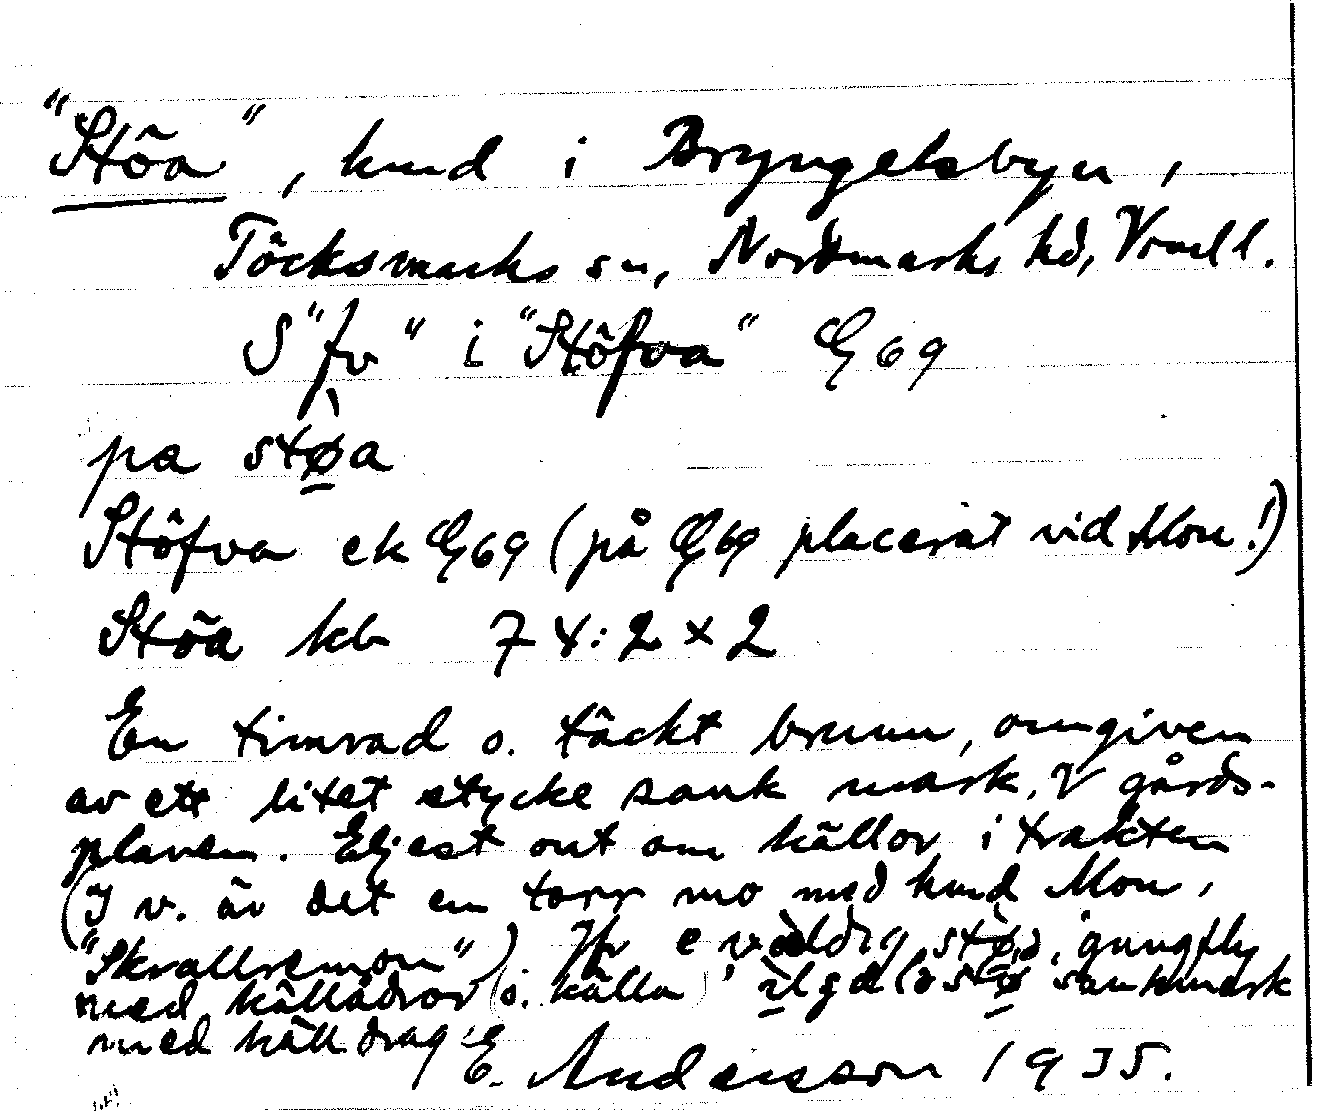 "Stöa", hmd i Bryngelsbyn,
Töcksmarks sn, Nordmarks hd, Vrml l.
S "fv" i "Stöfva" G 69
på støa
Stöfva ek G 69 (på G 69 placerat vid Mon!)
Stöa kb 74: 2 x 2
En timrad o. täckt brunn, omgiven
av ett litet stycke sank mark, V gårds-
planen. Eljest ont om källor i trakten
(I v. är det en torr mo med hmd Mon,
"Skrallremon") Jfr e väldig stø, gungfly
med källådror (o. källa) stø sankmark
med källdrag E. Andersson 1935.